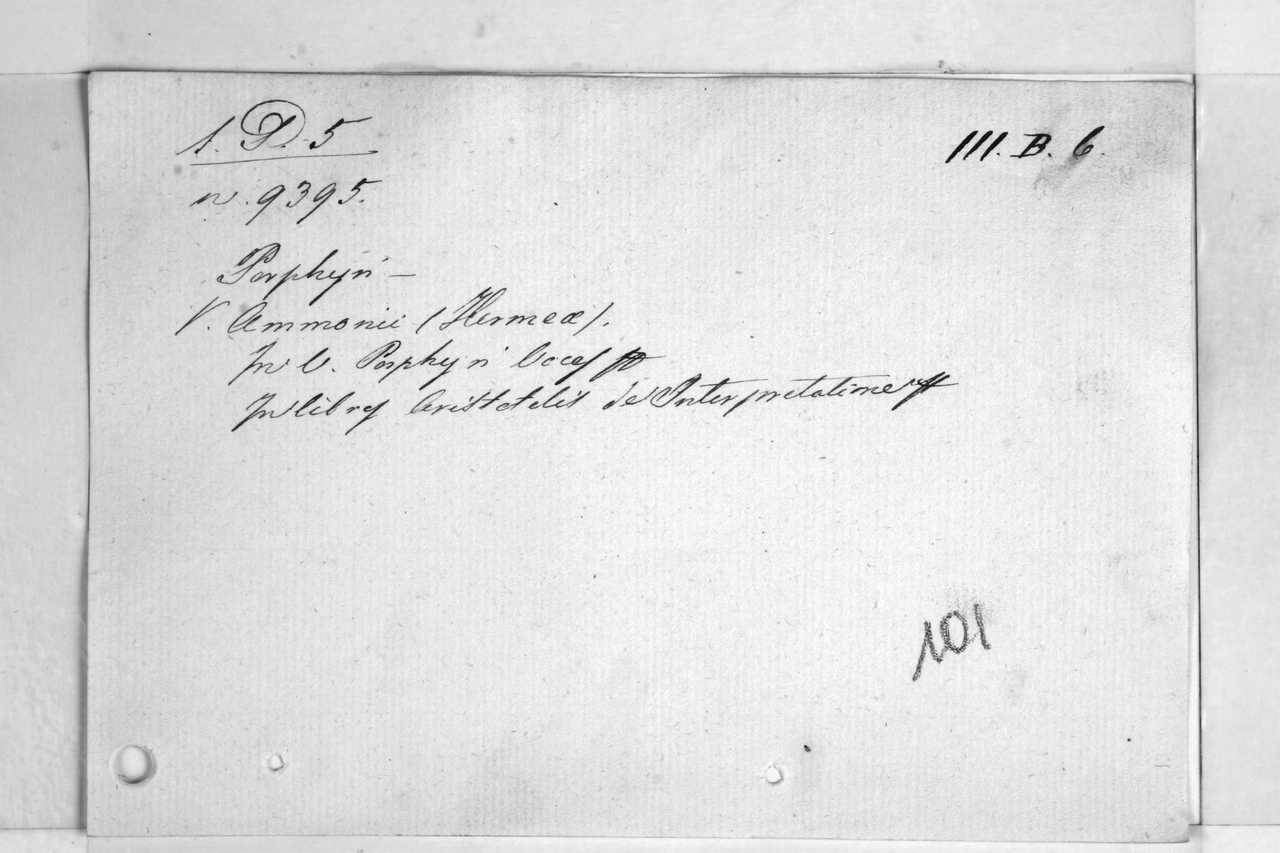 1. D. 5
III. B. 6.
n. 9395.
Porphyrii —
V. Ammonii (Hermeæ).
In V. Porphyrii Voces
In libros Aristotelis de Interpretatione
101